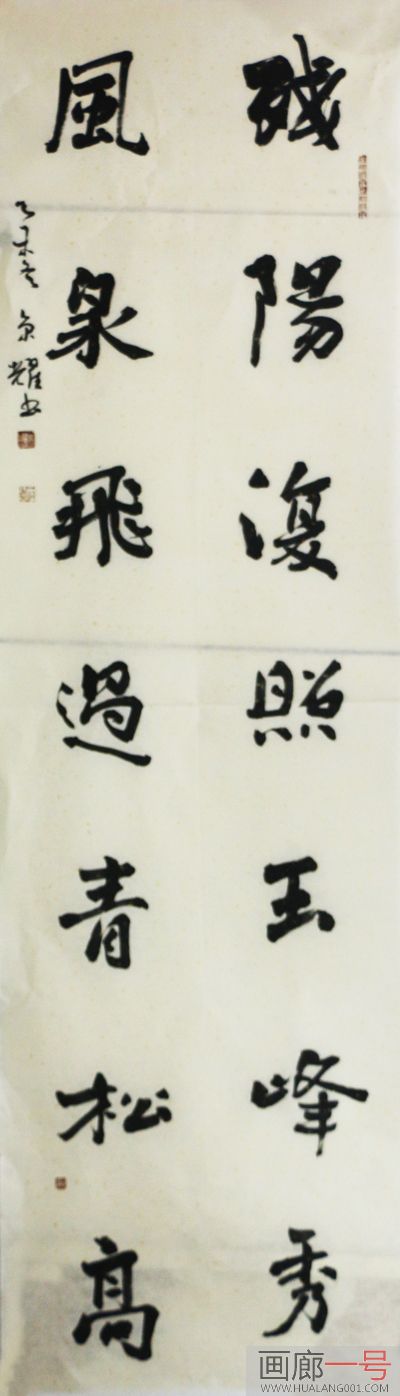 殘陽復照玉峰秀
風泉飛過青松高
乙未冬京耀书
画廊一号
WWW.HUALANG001.COM